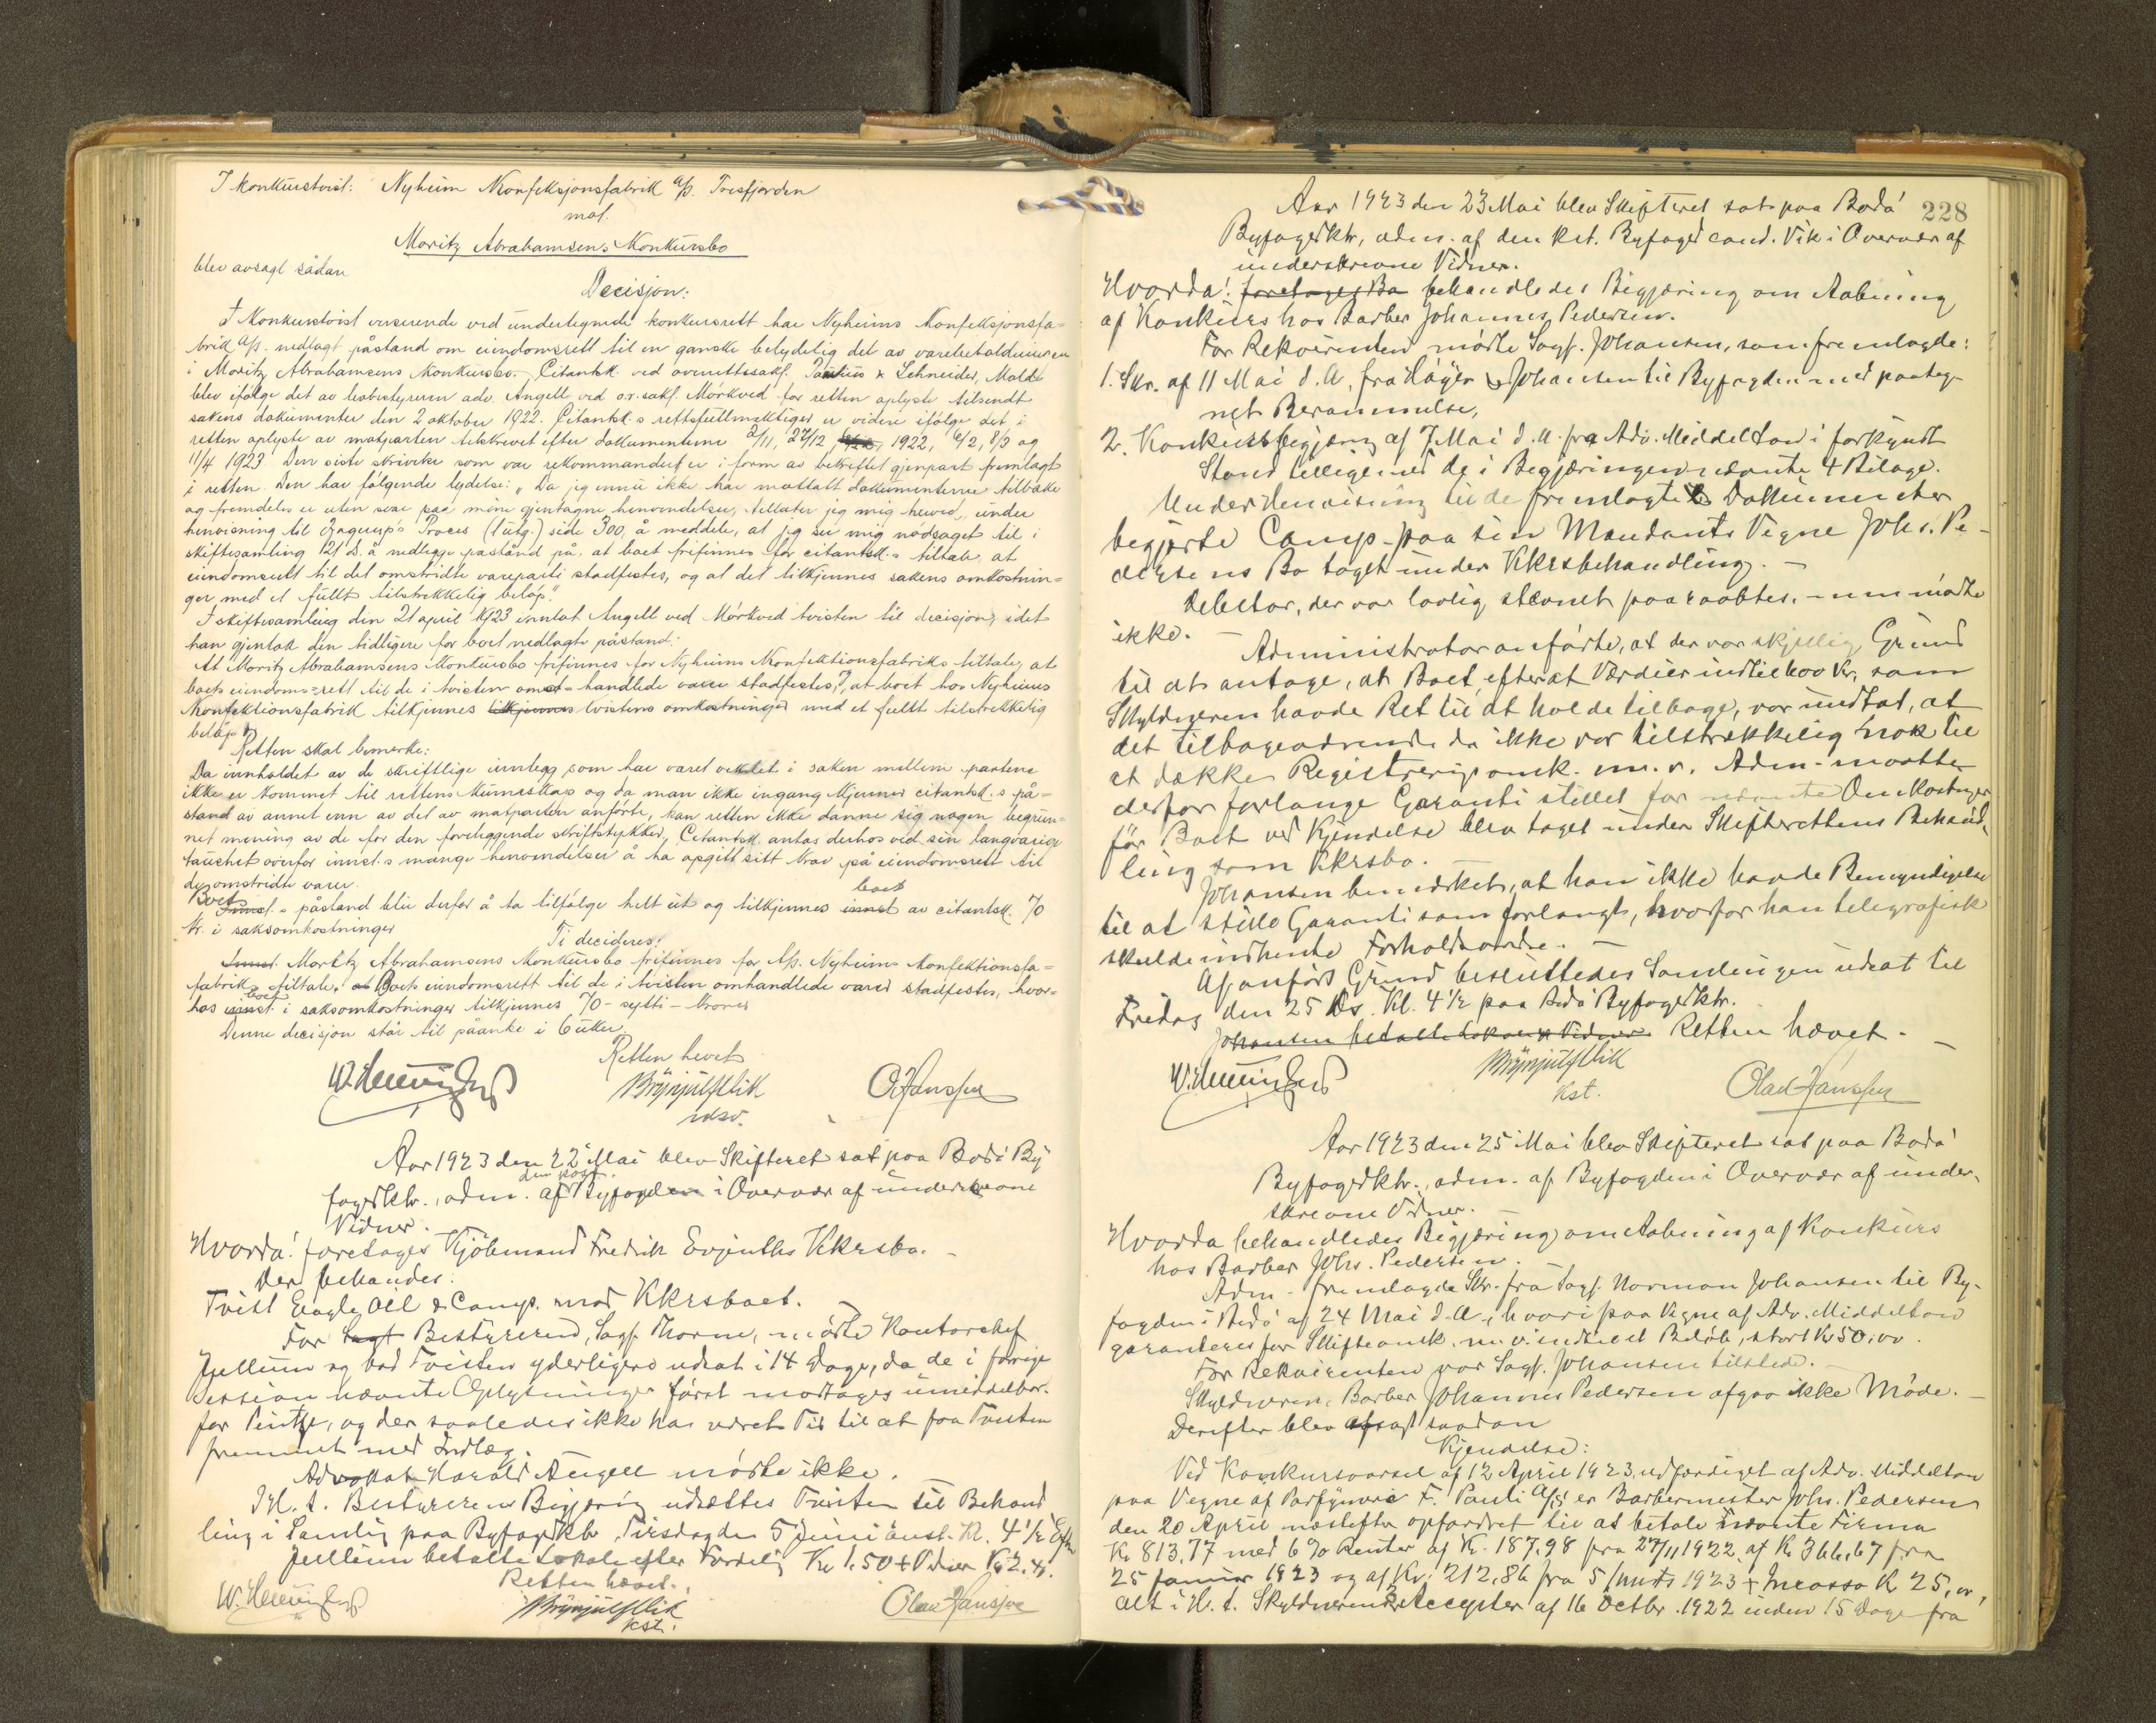 I konkurstvist: Nyheim Konfeksjonsfabrik A/S. Tresfjorden
mot.
Moritz Abrahamsens Konkursbo
blev avsagt sådan
Decisjon:
I Konkurstvist verserende ved undertegnede konkursrett har Nyheims Konfeksjonsfa=
brik A/S. nedlagt påstand om eiendomsrett til en ganske betydelig del av varebeholdningen
i Moritz Abrahamsens Konkursbo. Citantsk. ved overrettssakf. Paulius & Schneider, Molde
blev ifølge det av bobestyreren adv. Angell ved o.r.sakf. Mörkved for retten oplyste tilsendt
sakens dokumenter den 2 oktober 1922. Citantsk.s rettsfullmektiger er videre ifølge det i
retten oplyste av motparten tilskrevet efter dokumenterne 2/11, 27/12 1922, 6/2, 8/3 og
11/4 1923. Den siste skrivelse som var rekommandert er i form av bekreftet gjenpart fremlagt
i retten. Den har følgende lydelse: „Da jeg ennu ikke har mottatt dokumenterne tilbake
og fremdeles er uten svar paa mine gjentagne henvendelser, tillater jeg mig herved, under
henvisning til Hagerup's Proces (1 utg.) side 300, å meddele, at jeg ser mig nödsaget til i
skiftesamling 21' ds. å nedlegge påstand på, at boet frifinnes for citantsk.s tiltale, at
eiendomsrett til det omstridte vareparti stadfestes, og at det tilkjennes sakens omkostnin=
ger med et fullt tilstrekkelig beløp."
I skiftesamling den 21 april 1923 innlot Angell ved Mörkved tvisten til decisjon, idet
han gjentok den tidligere for boet nedlagte påstand:
At Moritz Abrahamsens Konkursbo frifinnes for Nyheims Konfektionsfabriks tiltale, at
boets eiendoms=rett til de i tvisten omhandlede varer stadfestes, at boet hos Nyheims
Konfektionsfabrik tilkjennes tilkjennes tvistens omkostninger med et fullt tilstrekkelig
beløp.
Retten skal bemerke:
Da innholdet av de skriftlige innlegg som har været vekslet i saken mellem partene
ikke er kommet til rettens kunnskap og da man ikke ingang kjenner citantsk.s på=
stand av annet enn av det av motparten anförte, kan retten ikke danne sig nogen begrun=
net mening av de for den foreliggende skriftstykker, Citantsk. antas derhos ved sin langvarige
taushet overfor innst.s mange henvendelser å ha opgitt sitt krav på eiendomsrett til
de omstridte varer.
Boets påstand blir derfor å ta tilfølge helt ut og tilkjennes boet av citantsk. 70
kr. i saksomkostninger
Ti decideres:
Moritz Abrahamsens Konkursbo frifinnes for A/S. Nyheims Konfektionsfa=
briks tiltale. Boets eiendomsrett til de i tvisten omhandlede varer stadfestes, hvor=
hos boet i saksomkostninger tilkjennes 70 - sytti - kroner
Denne decisjon står til påanke i 6 uker
Retten hevet
Brynjulf Vik
O. Hanssen
Aar 1923 den 22' Mai blev Skifteret sat paa Bodö By
fogedktr., adm. af den kost. Byfoged i Overvær af underskrevne
Vidner.
Hvorda! foretages Kjöbmand Fredrik Evjenths Kkrsbo. -
Der behandles:
Tvist Eagle Oil & Comp. mod Kkrsboet.
For Bestyreren, Sagf. Thorne, mödte Kontorchef
Jullum og bad Tvisten yderligere udsat i 14 Dage, da de i forrige
Session nævnte Oplysninger först modtages umiddelbar.
for Pintse, og der saaledes ikke har været Tid til at faa Tvisten
fremmet med Indlæg.
Advokat Harald Angell mödte ikke.
Iflg. Bestyrerens Begjæring udsættes Tvisten til Behand
ling i Samling paa Byfogedktr Tirsdag den 5' Juni anst. Kl. 4 1/2 Efm
Jullum betalte Lokale efter Fordeling Kr 1.50 + Vidner Kr 2.40.
Retten hævet.
Brynjulf Vik
kst.
Olav Hanssen
228
Aar 1923 den 23 Mai blev Skifteret sat paa Bodö
Byfogedktr, adm. af den kst. Byfoged cand. Vik i Overvær af
underskrevne Vidner.
Hvorda! foretages Bo behandledes Begjæring om Aabning
af Konkurs hos Barber Johannes Pedersen.
For Rekvirenten mödte Sagf. Johansen, som fremlagde:
1. Skr. af 11 Mai d. A. fra Höyer & Johansen til Byfogden med paateg-
net Berammelse,
2. Konkursbegjæring af 7 Mai d. A. fra Adv. Middelton i forkyndt
Stand tilligemed de i Begjæringen nævnte 4 Bilage.
Under Henvisning til de fremlagte Dokumenter
begjærte Comp. paa sin Mandants Vegne Johs. Pe-
dersens Bo taget under Kkrsbehandling. -
Debitor, der var lovlig stevnet paaraabtes, - men mödte
ikke. -
Administrator anförte, at der var skjellig Grund
til at antage, at Boet, efterat Værdier indtil 600 kr, som
Skyldneren havde Ret til at holde tilbage, var undtat, at
det tilbageværende da ikke var tilstrækkelig nok til
at dække Registreringsomk. m. v. Adm. maatte
derfor forlange Garanti stillet for nævnte Omkostninger
før Boet ved Kjendelse blev taget under Skifterettens Behand-
ling som Kkrsbo.
Johansen bemærket, at han ikke havde Bemyndigelse
til at stille Garanti som forlangt, hvorfor han telegrafisk
skulde indhente Forholdsordre. -
Af anfört Grund besluttedes Samlingen udsat til
Fredag den 25 Ds. Kl. 4 1/2 paa Bodö Byfogedktr.
Johansen betalte Lokale & Vidner Retten hævet. -
Brynjulf Vik
kst.
Olav Hanssen
Aar 1923 den 25 Mai blev Skifteret sat paa Bodö
Byfogedktr., adm. af Byfogden i Overvær af under-
skrevne Vidner.
Hvorda behandledes Begjæring om Aabning af Konkurs
hos Barber Johs. Pedersen.
Adm. fremlagde Skr. fra Sagf. Norman Johansen til By-
fogden i Bodö af 24 Mai d. A., hvori paa Vegne af Adv. Middelton
garanteres for Skifteomk. m. v. indtil et Beløb, stort Kr 50,00.
For Rekvirenten var Sagf. Johansen tilstede. -
Skyldneren, Barber Johannes Pedersen afgav ikke Möde. -
Derefter blev afsagt saadan
Kjendelse:
Ved Konkursvarsel af 12 April 1923, udfærdiget af Adv. Middelton
paa Vegne af Parfymeri F. Pauli A/S er Barbermester Johs. Pedersen
den 20 April næstefter opfordret til at betale nævnte Firma
Kr 813,77 med 6 % Renter af Kr. 187,98 fra 27/11 1922, af Kr 366,67 fra
25 Januar 1923 og af Kr. 212,86 fra 5 Marts 1923 + Incasso K 25,00,
alt i H. t. Skyldnerens Accepter af 16 Octbr. 1922 inden 15 Dage fra